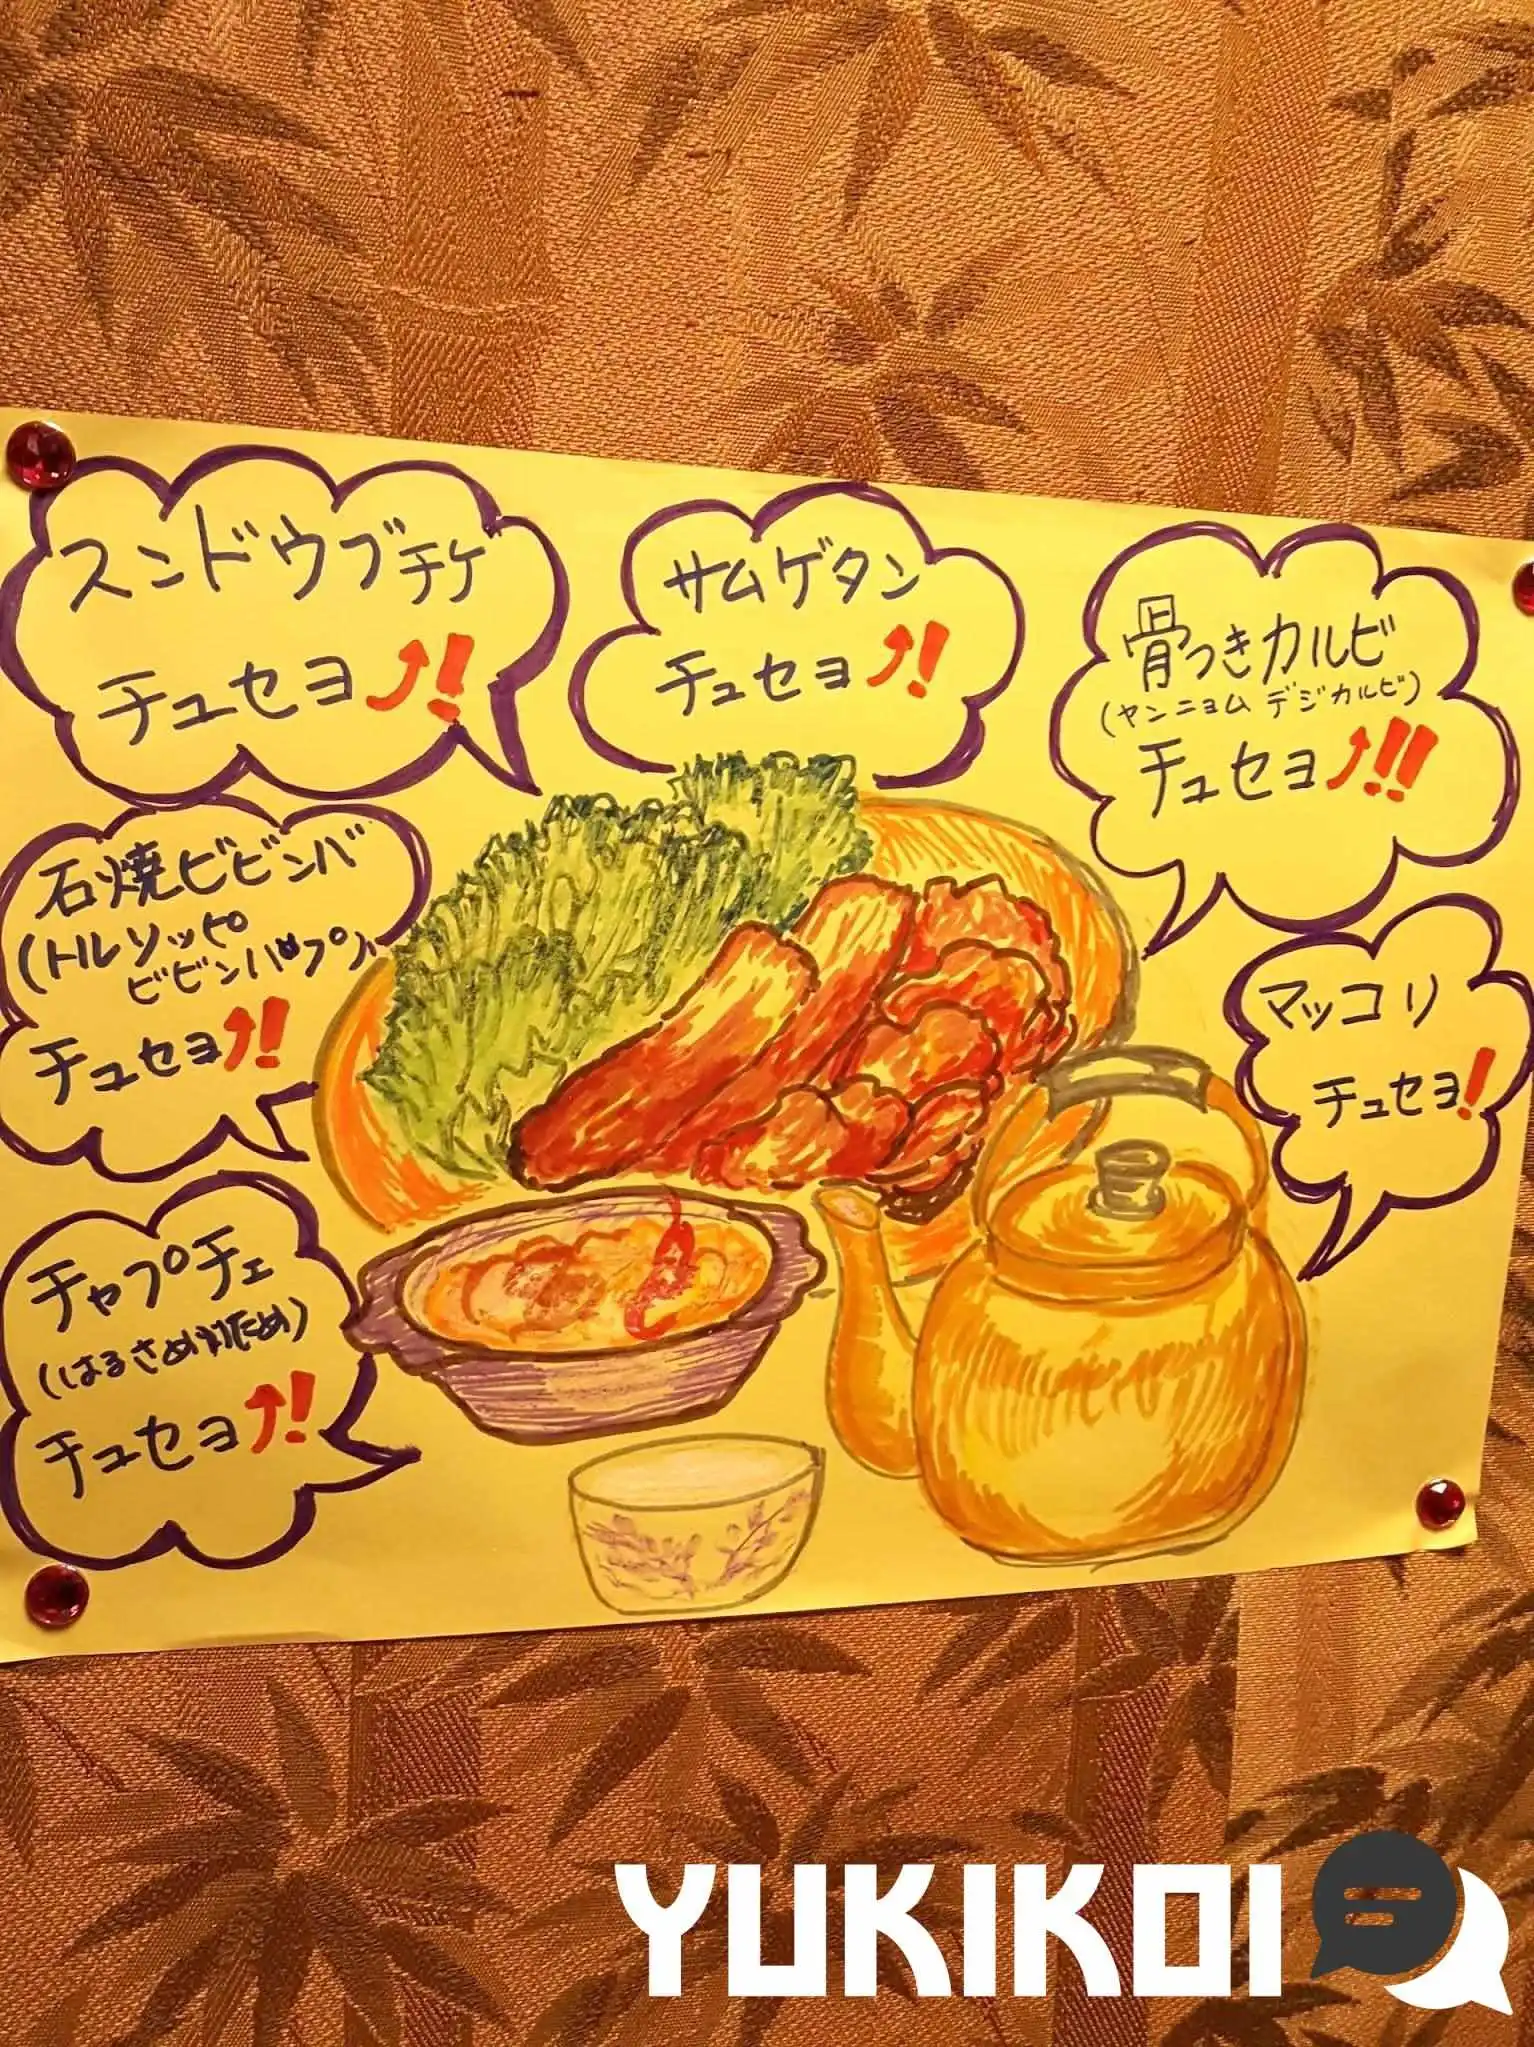 スンドゥブチゲ
チュセヨ⤴!!
サムゲタン
チュセヨ⤴!!
骨つきカルビ
(ヤンニョム デジカルビ)
チュセヨ⤴!!!
石焼ビビンバ
(トルソッピ
ビビンバプ)
チュセヨ⤴!!
マッコリ
チュセヨ!
チャプチェ
(はるさめ炒め)
チュセヨ⤴!!
YUKIKOI